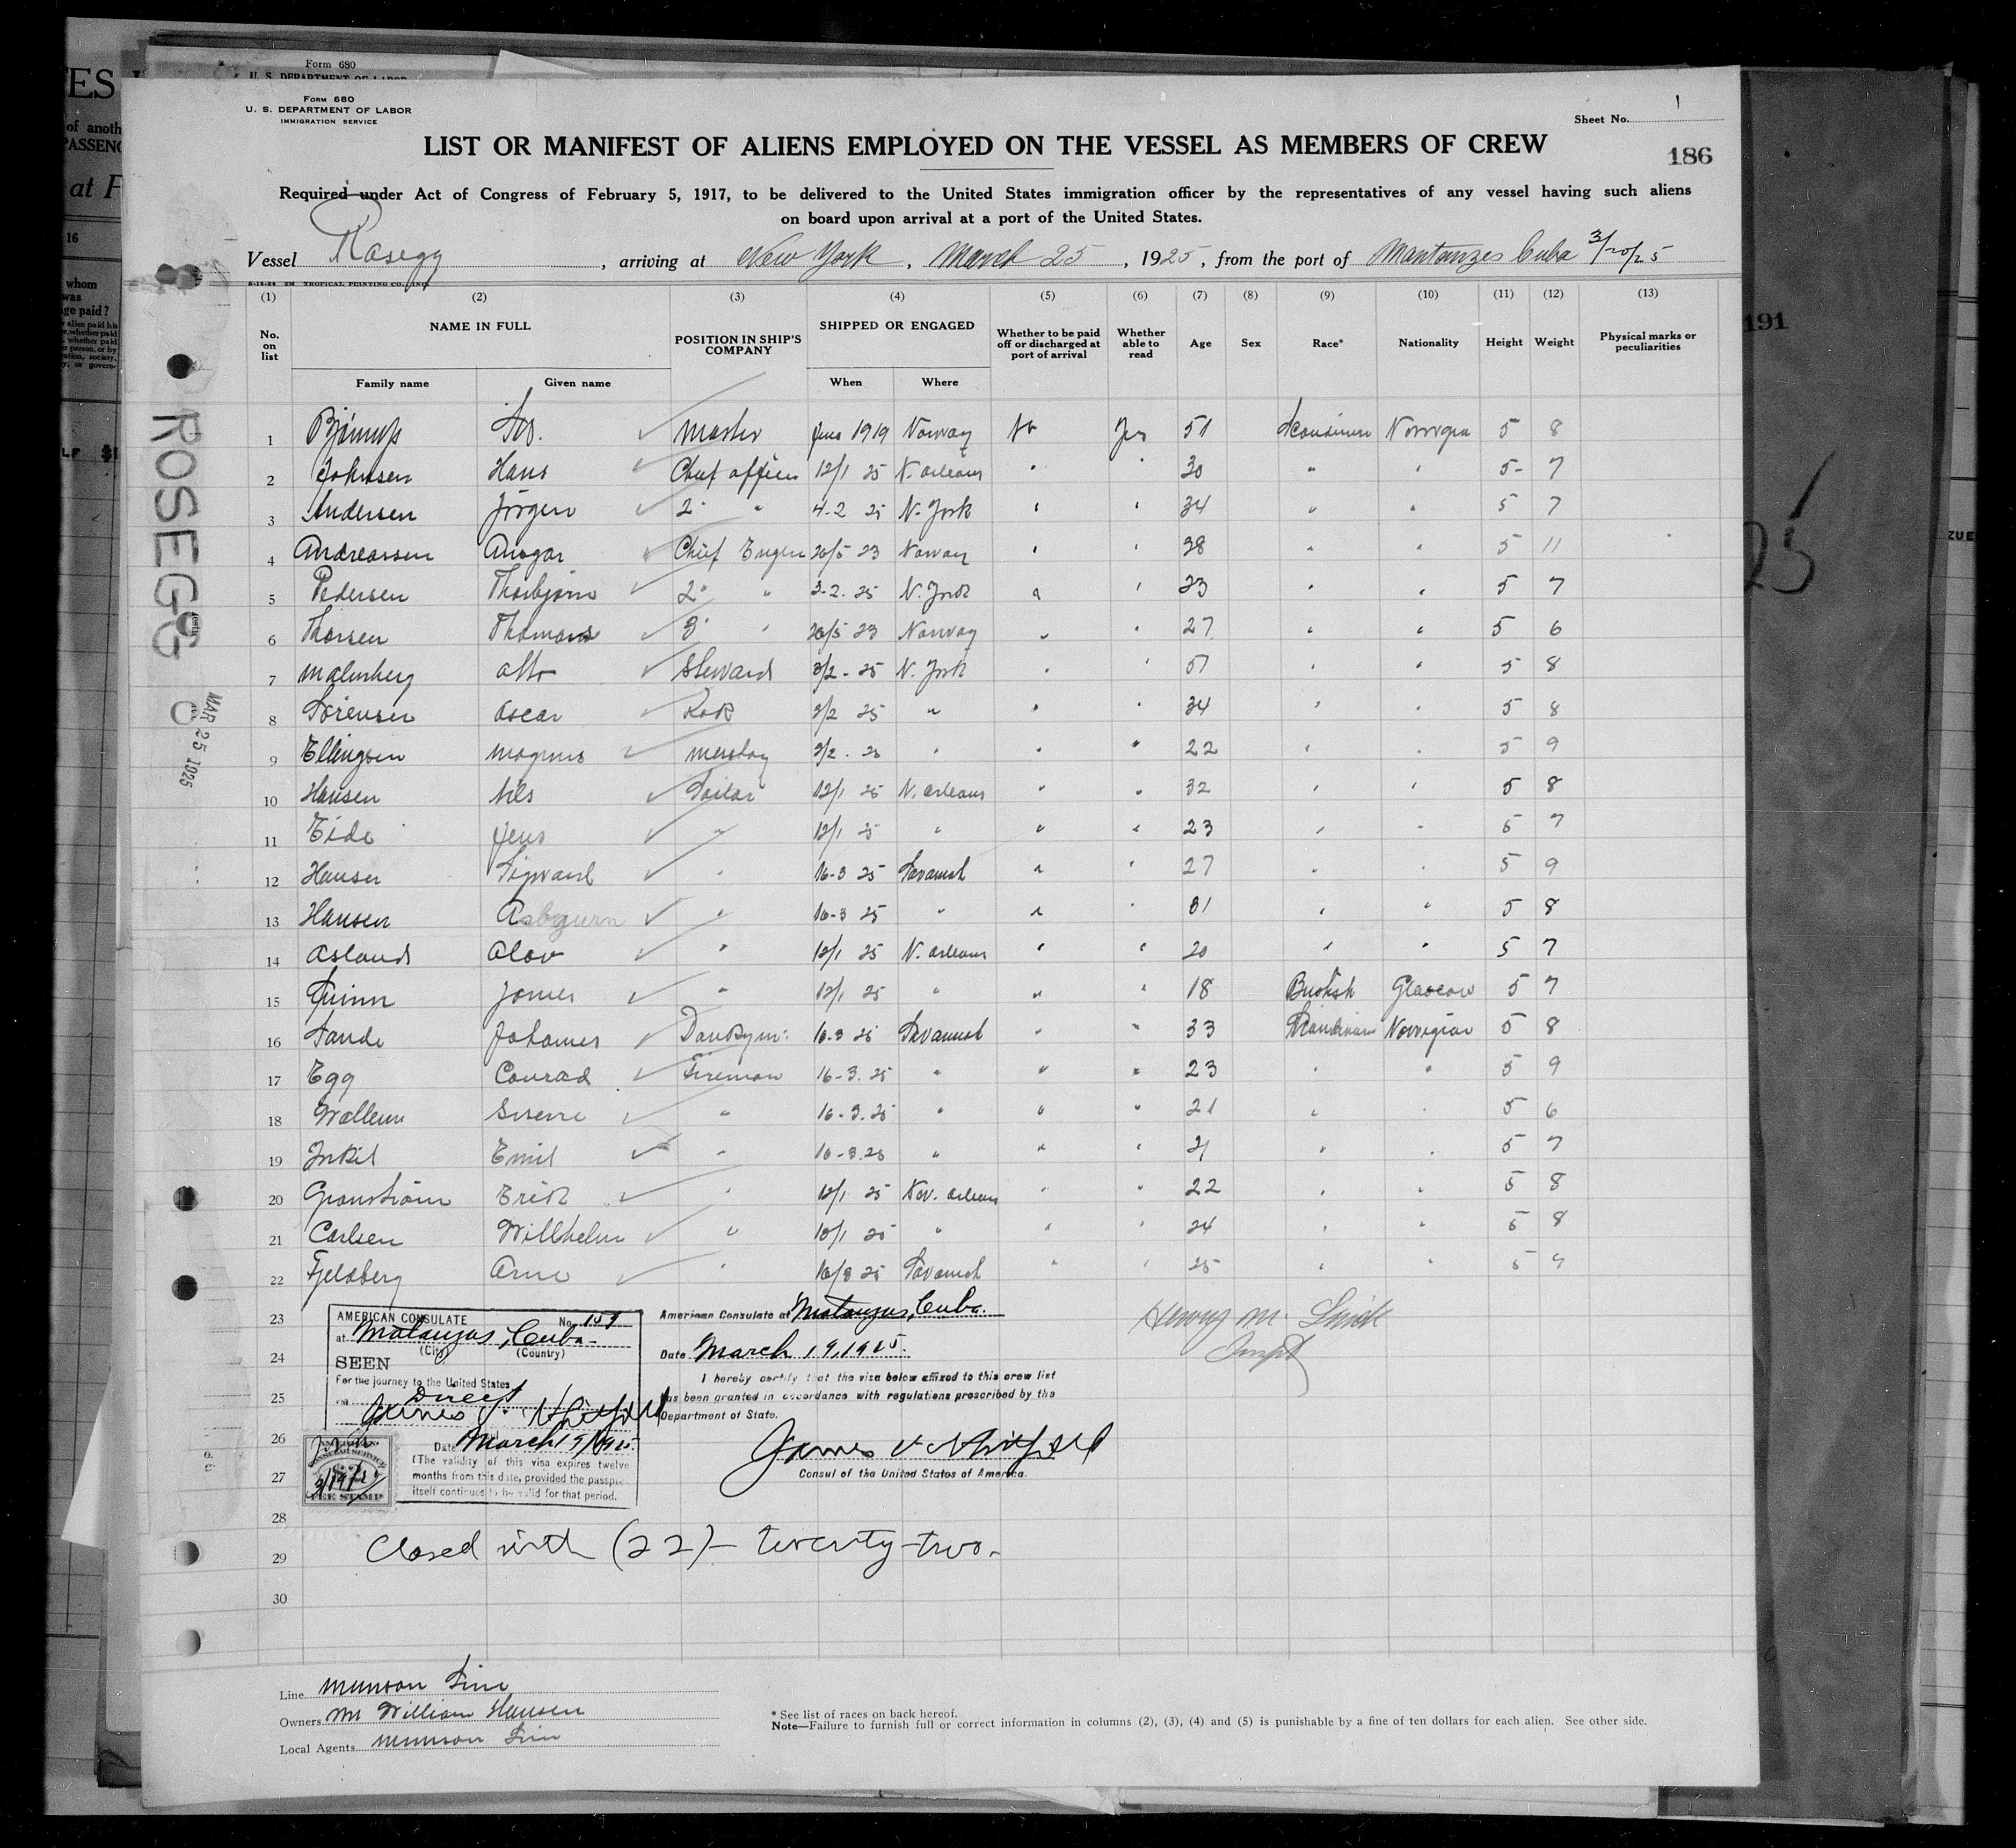 Form 680
U. S. DEPARTMENT OF LABOR
Form 680
U. S. DEPARTMENT OF LABOR
IMMIGRATION SERVICE
Sheet No. 1
LIST OR MANIFEST OF ALIENS EMPLOYED ON THE VESSEL AS MEMBERS OF CREW
186
Required under Act of Congress of February 5, 1917, to be delivered to the United States immigration officer by the representatives of any vessel having such aliens
on board upon arrival at a port of the United States.
Vessel Rosegg, arriving at New York, March 25, 1925, from the port of Mantanzes Cuba 3/20/25
(1) (2) (3) (4) (5) (6) (7) (8) (9) (10) (11) (12) (13)
No. on list NAME IN FULL POSITION IN SHIP'S COMPANY SHIPPED OR ENGAGED Whether to be paid off or discharged at port of arrival Whether able to read Age Sex Race* Nationality Height Weight Physical marks or peculiarities
Family name Given name When Where
1 master 1919 Norway No Yes 51 5 8
2 Johnsen Hans Chief officer 12/1 25 N. Orleans " " 30 " " 5 7
3 Andersen Jörgen 2" " 4-2 25 N. York " " 34 " " 5 7
4 Andreassen Ansgar Chief Engen 20/5 23 Norway " " 38 " " 5 11
5 Pedersen Thorbjörn 2" " 3-2. 25 N. York " " 23 " " 5 7
6 Thorsen Thomas 3" " 20/5 23 Norway " " 27 " " 5 6
7 Malmberg Otto Steward 3/2 - 25 N. York " " 51 " " 5 8
8 Sörensen Oscar Kok 3/2 25 " " " 34 " " 5 8
9 Ellingsen Magnus 3/2 . 25 " " " 22 " " 5 9
10 Hansen Nils Sailor 12/1 25 N. Orleans " " 32 " " 5 8
11 Eide Jens " 12/1 25 " " " 23 " " 5 7
12 Hansen Sigvard " 16-3 25 Savanah " " 27 " " 5 9
13 Hansen " 16-3 25 " " " 31 " " 5 8
14 Asland Olav " 12/1 25 N. Orleans " " 20 " " 5 7
15 Quinn James " 12/1 25 " " " 18 British Glascow 5 7
16 Sande Johannes 16-3 25 Savannah " " 33 Norvegian 5 8
17 Egg Conrad Fireman 16-3.25 " " " 23 " " 5 9
18 Sverre " 16-3.25 " " " 21 " " 5 6
19 Emil " 16-3.25 " " " 21 " " 5 7
20 Granström Erik " 12/1 25 Nev. Orleans " " 22 " " 5 8
21 Carlsen Willhelm " 12/1 25 " " " 24 " " 5 8
22 Fjeldberg Arne " 16/3 25 Savanah " " 25 " " 5 9
23
24
25
26
27
28
29
30
AMERICAN CONSULATE No. 157
at Matanzas, Cuba
(City) (Country)
SEEN
For the journey to the United States
via Direct
James V. Whitfield
Date March 19, 1925
(The validity of this visa expires twelve
months from this date, provided the passport
itself continues to be valid for that period.
CONSULAR SERVICE
3/19/25
FEE STAMP
American Consulate at Matanzas, Cuba.
Date March 19, 1925.
I hereby certify that the visa below affixed to this crew list
has been granted in accordance with regulations prescribed by the
Department of State.
James V. Whitfield
Consul of the United States of America.
Henry M.
Inspt
Closed with (22) - twenty-two.
Line Munson Line
Owners Mr William Hansen
Local Agents Munson Line
* See list of races on back hereof.
Note—Failure to furnish full or correct information in columns (2), (3), (4) and (5) is punishable by a fine of ten dollars for each alien. See other side.
ROSEGG
MAR 25 1925
191
25